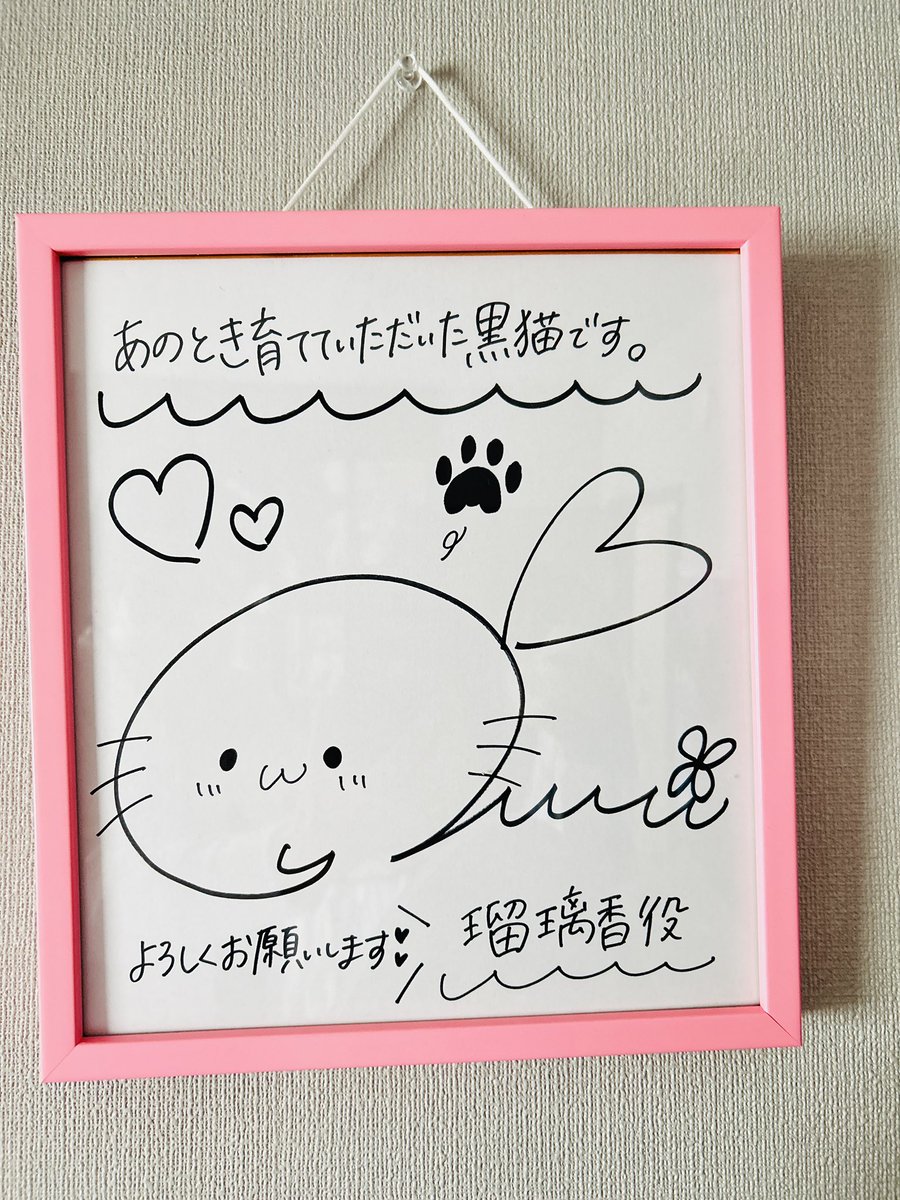 あのとき育てていただいた黒猫です。
よろしくお願いします
瑠璃香役